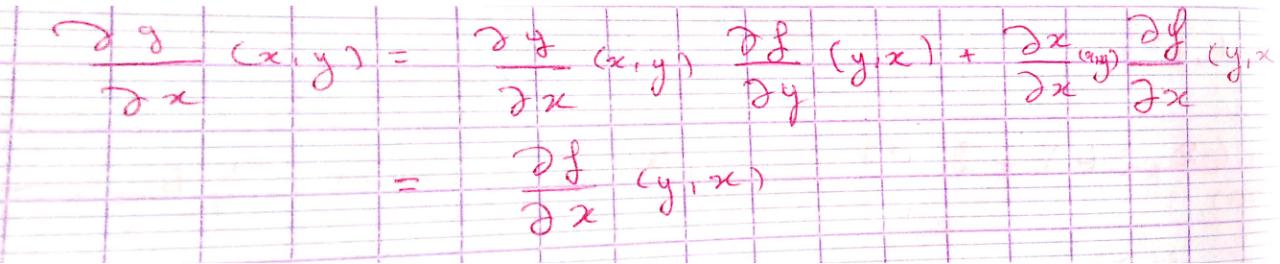 ∂g/∂x (x,y) = ∂y/∂x (x,y) ∂f/∂y (y,x) + ∂x/∂x (x,y) ∂f/∂x (y,x
= ∂f/∂x (y,x)